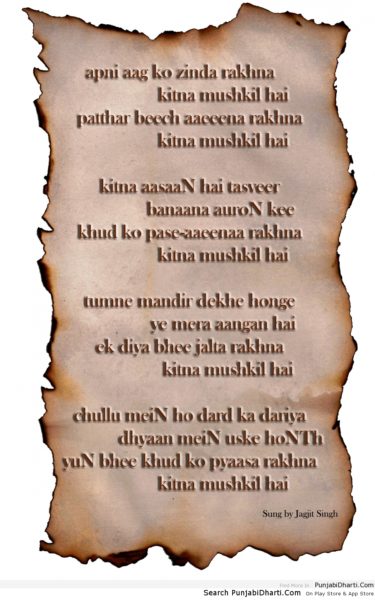 apni aag ko zinda rakhna
kitna mushkil hai
patthar beech aaeeena rakhna
kitna mushkil hai
kitna aasaaN hai tasveer
banaana auroN kee
khud ko pase-aaeenaa rakhna
kitna mushkil hai
tumne mandir dekhe honge
ye mera aangan hai
ek diya bhee jalta rakhna
kitna mushkil hai
chullu meiN ho dard ka dariya
dhyaan meiN uske hoNTh
yuN bhee khud ko pyaasa rakhna
kitna mushkil hai
Sung by Jagjit Singh
Find More In : PunjabiDharti.Com
Search PunjabiDharti.Com On Play Store & App Store